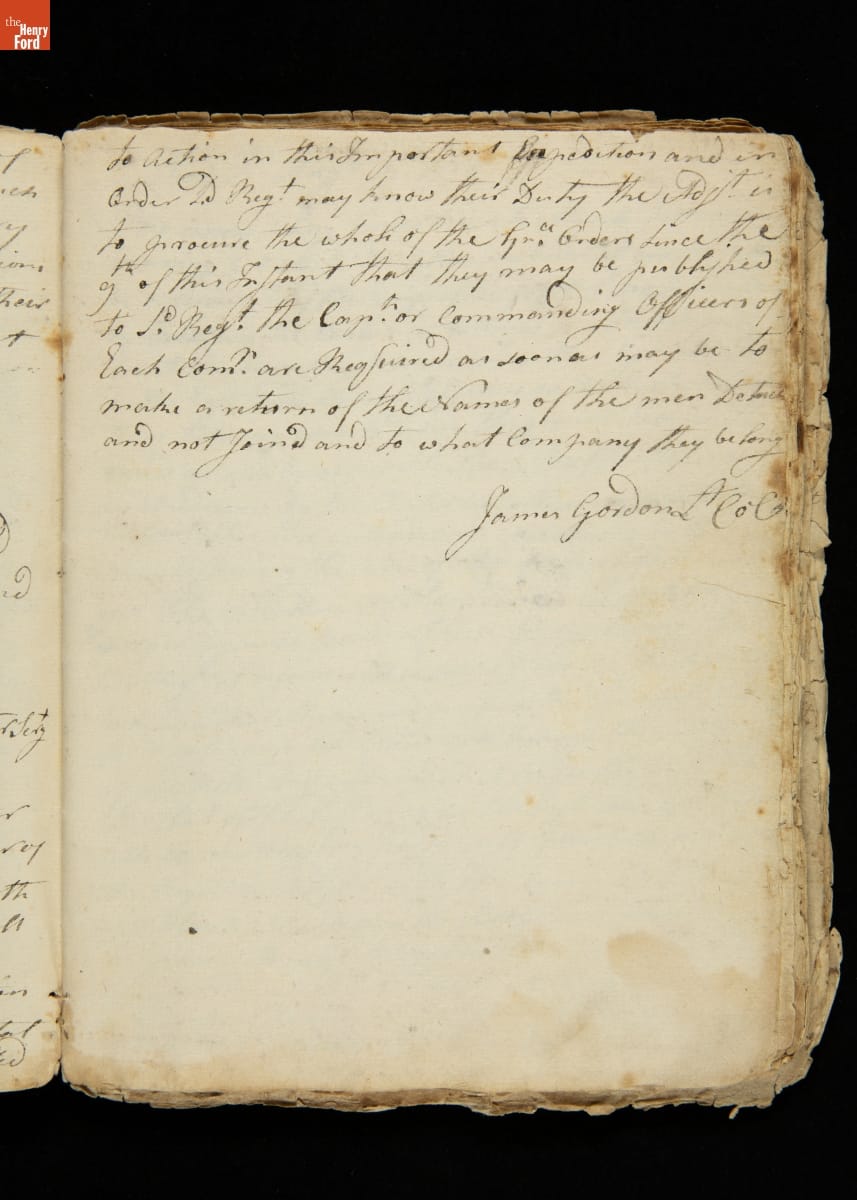 the
Henry
Ford
to action in this Important Expedition and in
Order Sd Regt may know their Duty the Adjt is
to procure the whole of the Gnal Orders since the
9th of this Instant that they may be published
to Sd Regt the Captn or Commanding Officers of
Each Comy are Required as soon as may be to
make a return of the Names of the men
and not Joind and to what Company they belong
James Gordon Lt Col